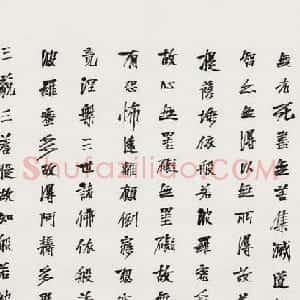 無老死盡無苦集滅道
智亦無得以無所得故
提薩埵依般若波羅蜜
故心無罣礙無罣礙故
有恐怖遠離顛倒夢想
竟涅槃三世諸佛依般若
波羅蜜多故得阿耨多
三藐三菩提故知般若
Shufaziliao.com